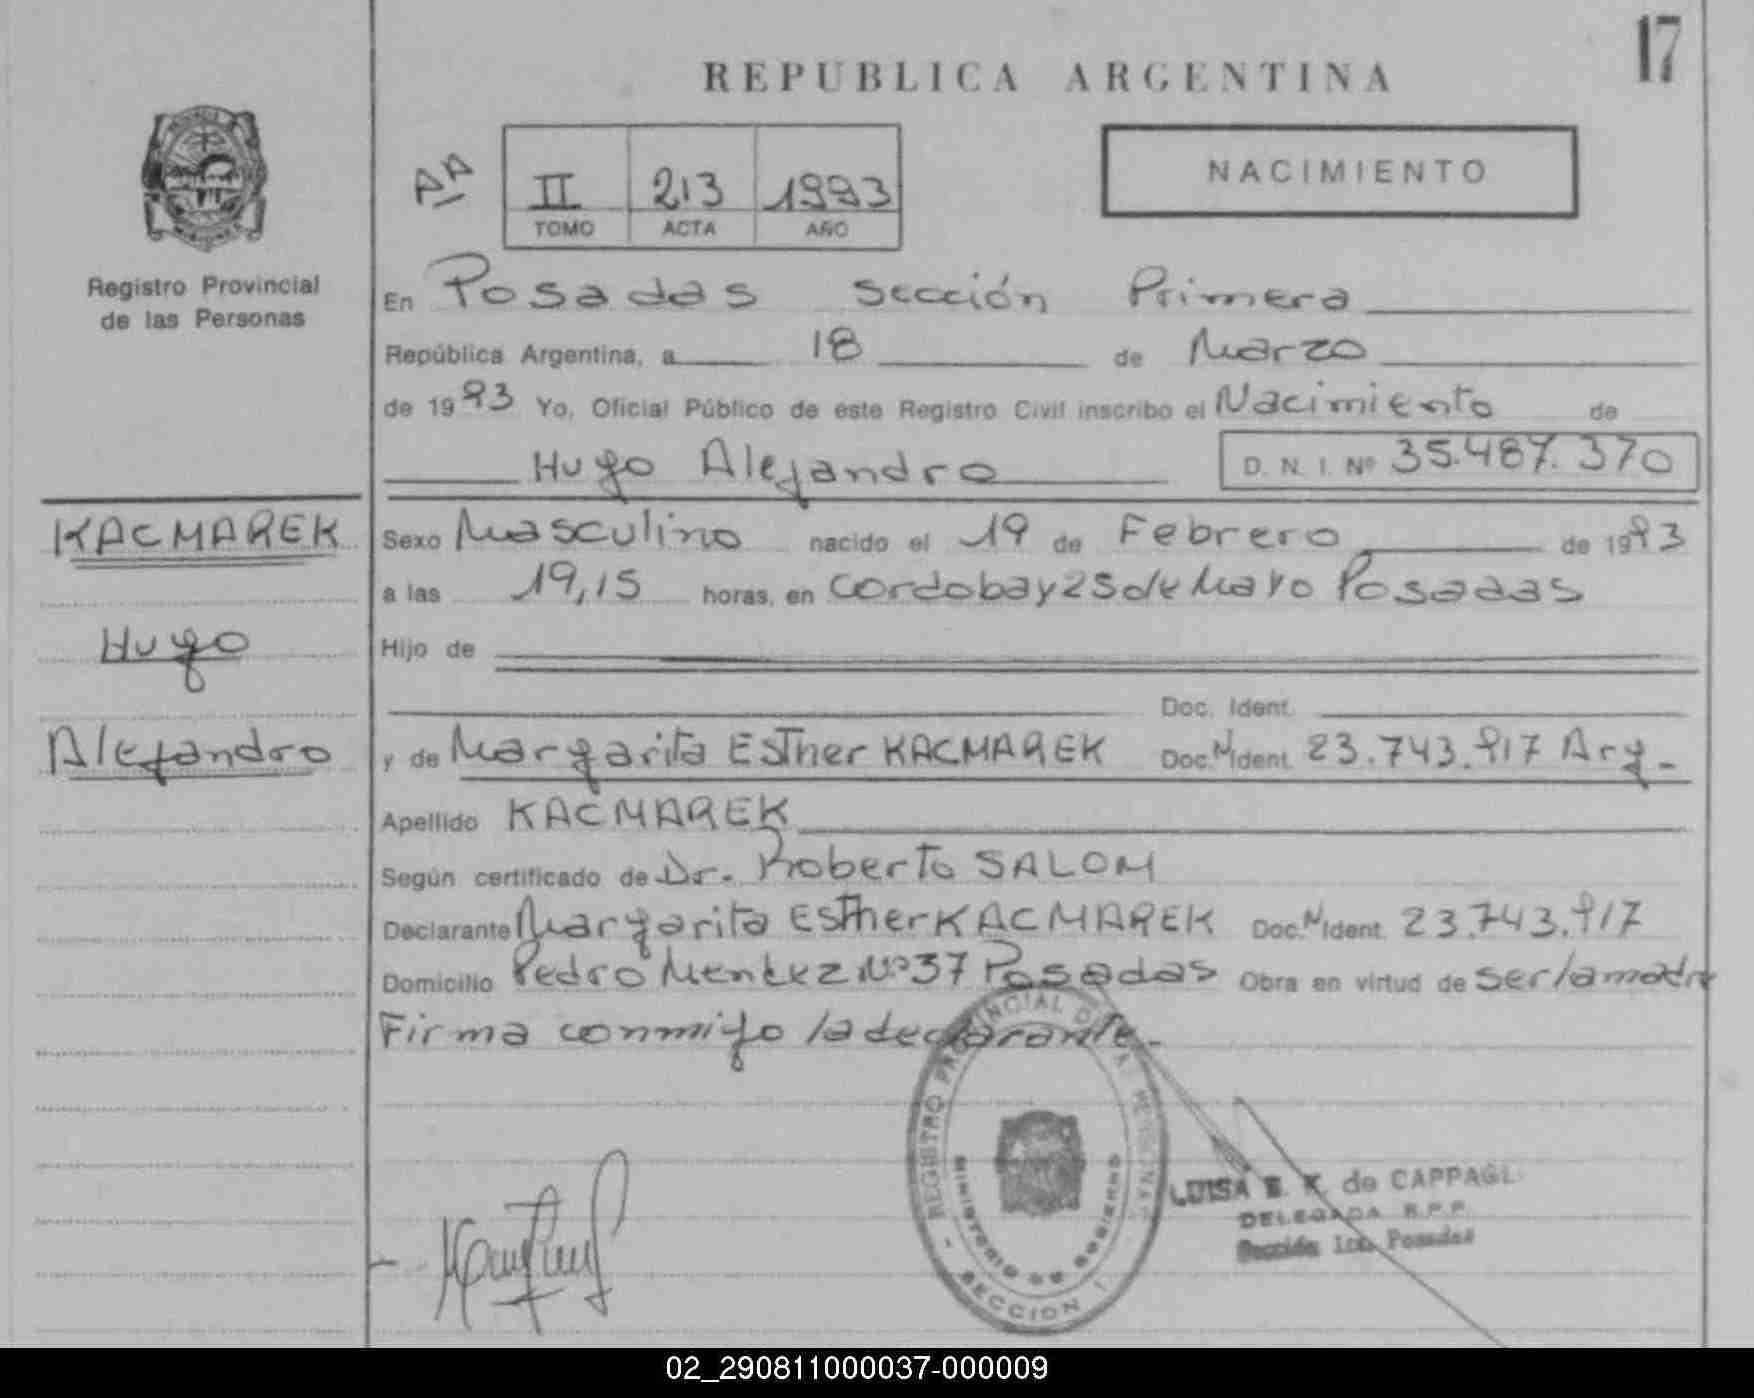 17
REPUBLICA ARGENTINA
NACIMIENTO
AA
II 213 1993
TOMO ACTA AÑO
Registro Provincial
de las Personas
En Posadas sección Primera
República Argentina, a 18 de Marzo
de 1993 Yo, Oficial Público de este Registro Civil inscribo el Nacimiento de
Hugo Alejandro D. N. I. Nº 35.487.370
KACMAREK
Hugo
Alejandro
Sexo Masculino nacido el 19 de Febrero de 1993
a las 19,15 horas, en Cordoba y 25 de Mayo Posadas
Hijo de
Doc. Ident.
y de Margarita Esther KACMAREK Doc.N Ident. 23.743.917 Arg.
Apellido KACMAREK
Según certificado de Dr. Roberto SALOM
Declarante Margarita Esther KACMAREK Doc.N Ident. 23.743.917
Domicilio Pedro Mendez Nº 37 Posadas Obra en virtud de ser la madre
Firma conmigo la declarante.
REGISTRO PROVINCIAL DE LAS PERSONAS
MINISTERIO DE GOBIERNO
- SECCION 1 -
LUISA E. K. de CAPPAGL
DELEGADA R.P.P.
Sección 1ra. Posadas
02_290811000037-000009